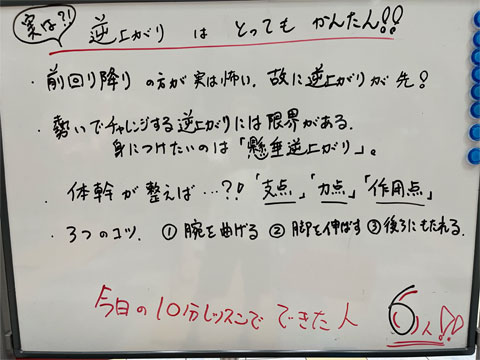 実は?!
逆上がり は とっても かんたん!!
・前回り降り の方が 実は怖い. 故に逆上がりが 先!
・勢いでチャレンジする逆上がりには限界がある.
身につけたいのは「懸垂逆上がり」。
・体幹が整えば…?!「支点」「力点」「作用点」
・3つのコツ. ①腕を曲げる ②脚を伸ばす ③後ろにもたれる.
今日の10分レッスンで できた人 6人!!